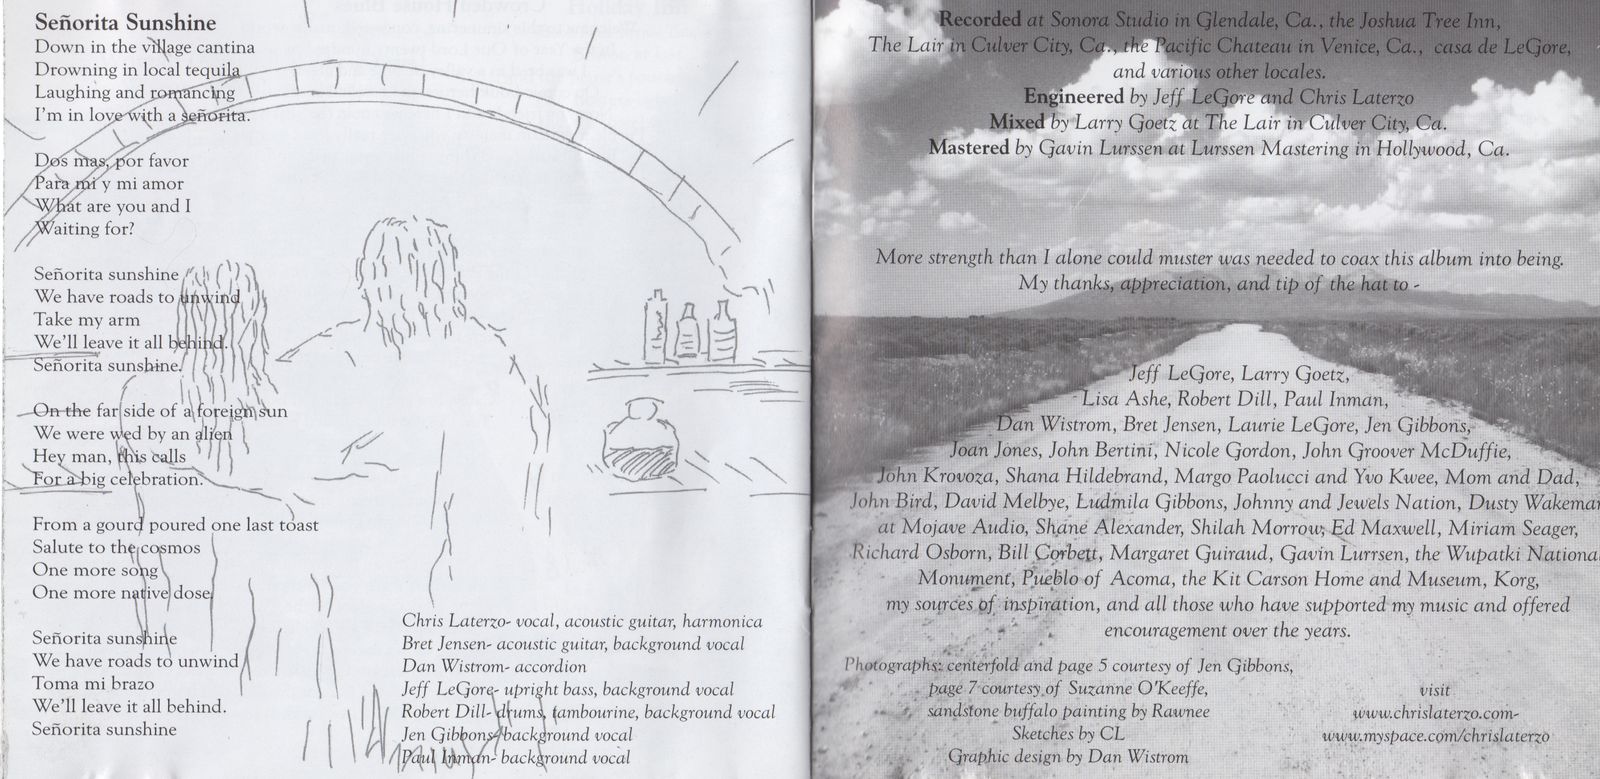 Señorita Sunshine
Down in the village cantina
Drowning in local tequila
Laughing and romancing
I'm in love with a señorita.
Dos mas, por favor
Para mi y mi amor
What are you and I
Waiting for?
Señorita sunshine
We have roads to unwind
Take my arm
We'll leave it all behind.
Señorita sunshine.
On the far side of a foreign sun
We were wed by an alien
Hey man, this calls
For a big celebration.
From a gourd poured one last toast
Salute to the cosmos
One more song
One more native dose.
Señorita sunshine
We have roads to unwind
Toma mi brazo
We'll leave it all behind.
Señorita sunshine
Chris Laterzo- vocal, acoustic guitar, harmonica
Bret Jensen- acoustic guitar, background vocal
Dan Wistrom- accordion
Jeff LeGore- upright bass, background vocal
Robert Dill- drums, tambourine, background vocal
Jen Gibbons- background vocal
Paul Inman- background vocal
Recorded at Sonora Studio in Glendale, Ca., the Joshua Tree Inn,
The Lair in Culver City, Ca., the Pacific Chateau in Venice, Ca., casa de LeGore,
and various other locales.
Engineered by Jeff LeGore and Chris Laterzo
Mixed by Larry Goetz at The Lair in Culver City, Ca.
Mastered by Gavin Lurssen at Lurssen Mastering in Hollywood, Ca.
More strength than I alone could muster was needed to coax this album into being.
My thanks, appreciation, and tip of the hat to -
Jeff LeGore, Larry Goetz,
Lisa Ashe, Robert Dill, Paul Inman,
Dan Wistrom, Bret Jensen, Laurie LeGore, Jen Gibbons,
Joan Jones, John Bertini, Nicole Gordon, John Groover McDuffie,
John Krovoza, Shana Hildebrand, Margo Paolucci and Yvo Kwee, Mom and Dad,
John Bird, David Melbye, Ludmila Gibbons, Johnny and Jewels Nation, Dusty Wakeman
at Mojave Audio, Shane Alexander, Shilah Morrow, Ed Maxwell, Miriam Seager,
Richard Osborn, Bill Corbett, Margaret Guiraud, Gavin Lurrsen, the Wupatki Nationa
Monument, Pueblo of Acoma, the Kit Carson Home and Museum, Korg,
my sources of inspiration, and all those who have supported my music and offered
encouragement over the years.
Photographs: centerfold and page 5 courtesy of Jen Gibbons,
page 7 courtesy of Suzanne O'Keeffe,
sandstone buffalo painting by Rawnee
Sketches by CL
Graphic design by Dan Wistrom
visit
www.chrislaterzo.com-
www.myspace.com/chrislaterzo